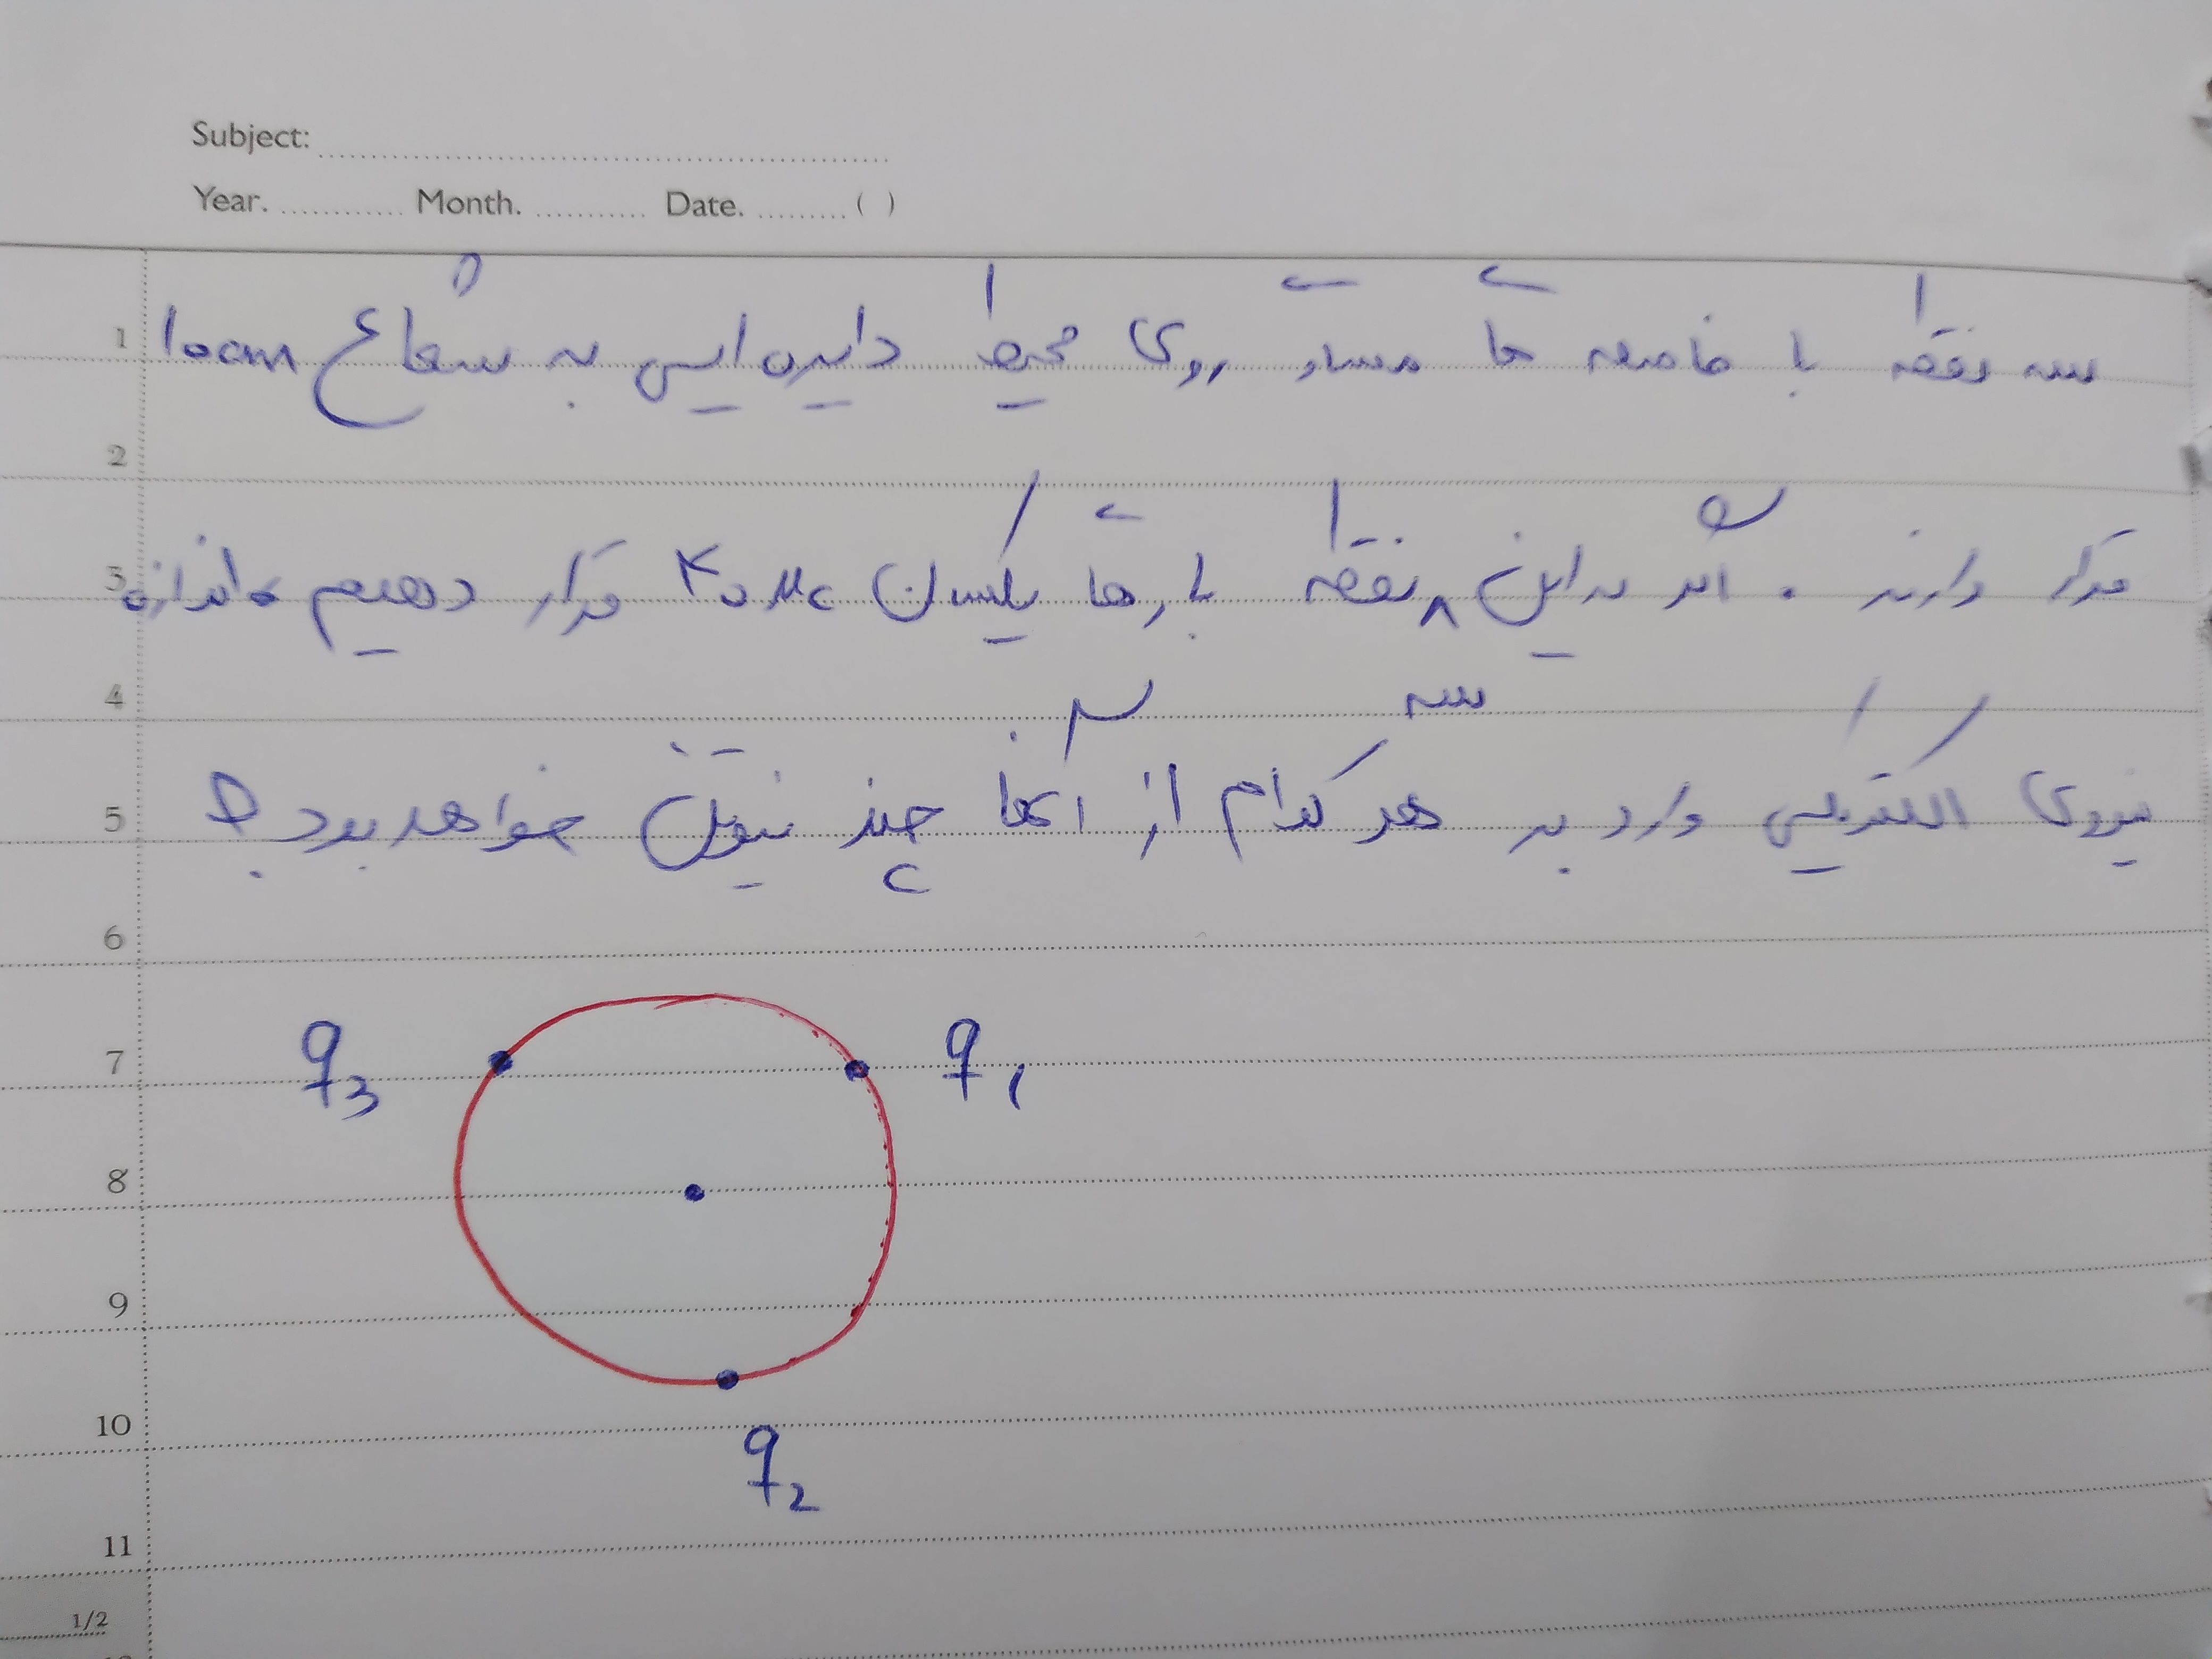 Subject:
Year. Month. Date. ( )
1 سه نقطه با فاصله های مساوی روی محیط دایره ایی به شعاع ۱۰cm
2
3 قرار دارند. اگر در این سه نقطه بارهای یکسان ۴۰μc قرار دهیم، اندازه
4
5 نیروی الکتریکی وارد بر هر کدام از آنها چند نیوتن خواهد بود؟
6
7 q3 q1
8
9
10
q2
11
1/2